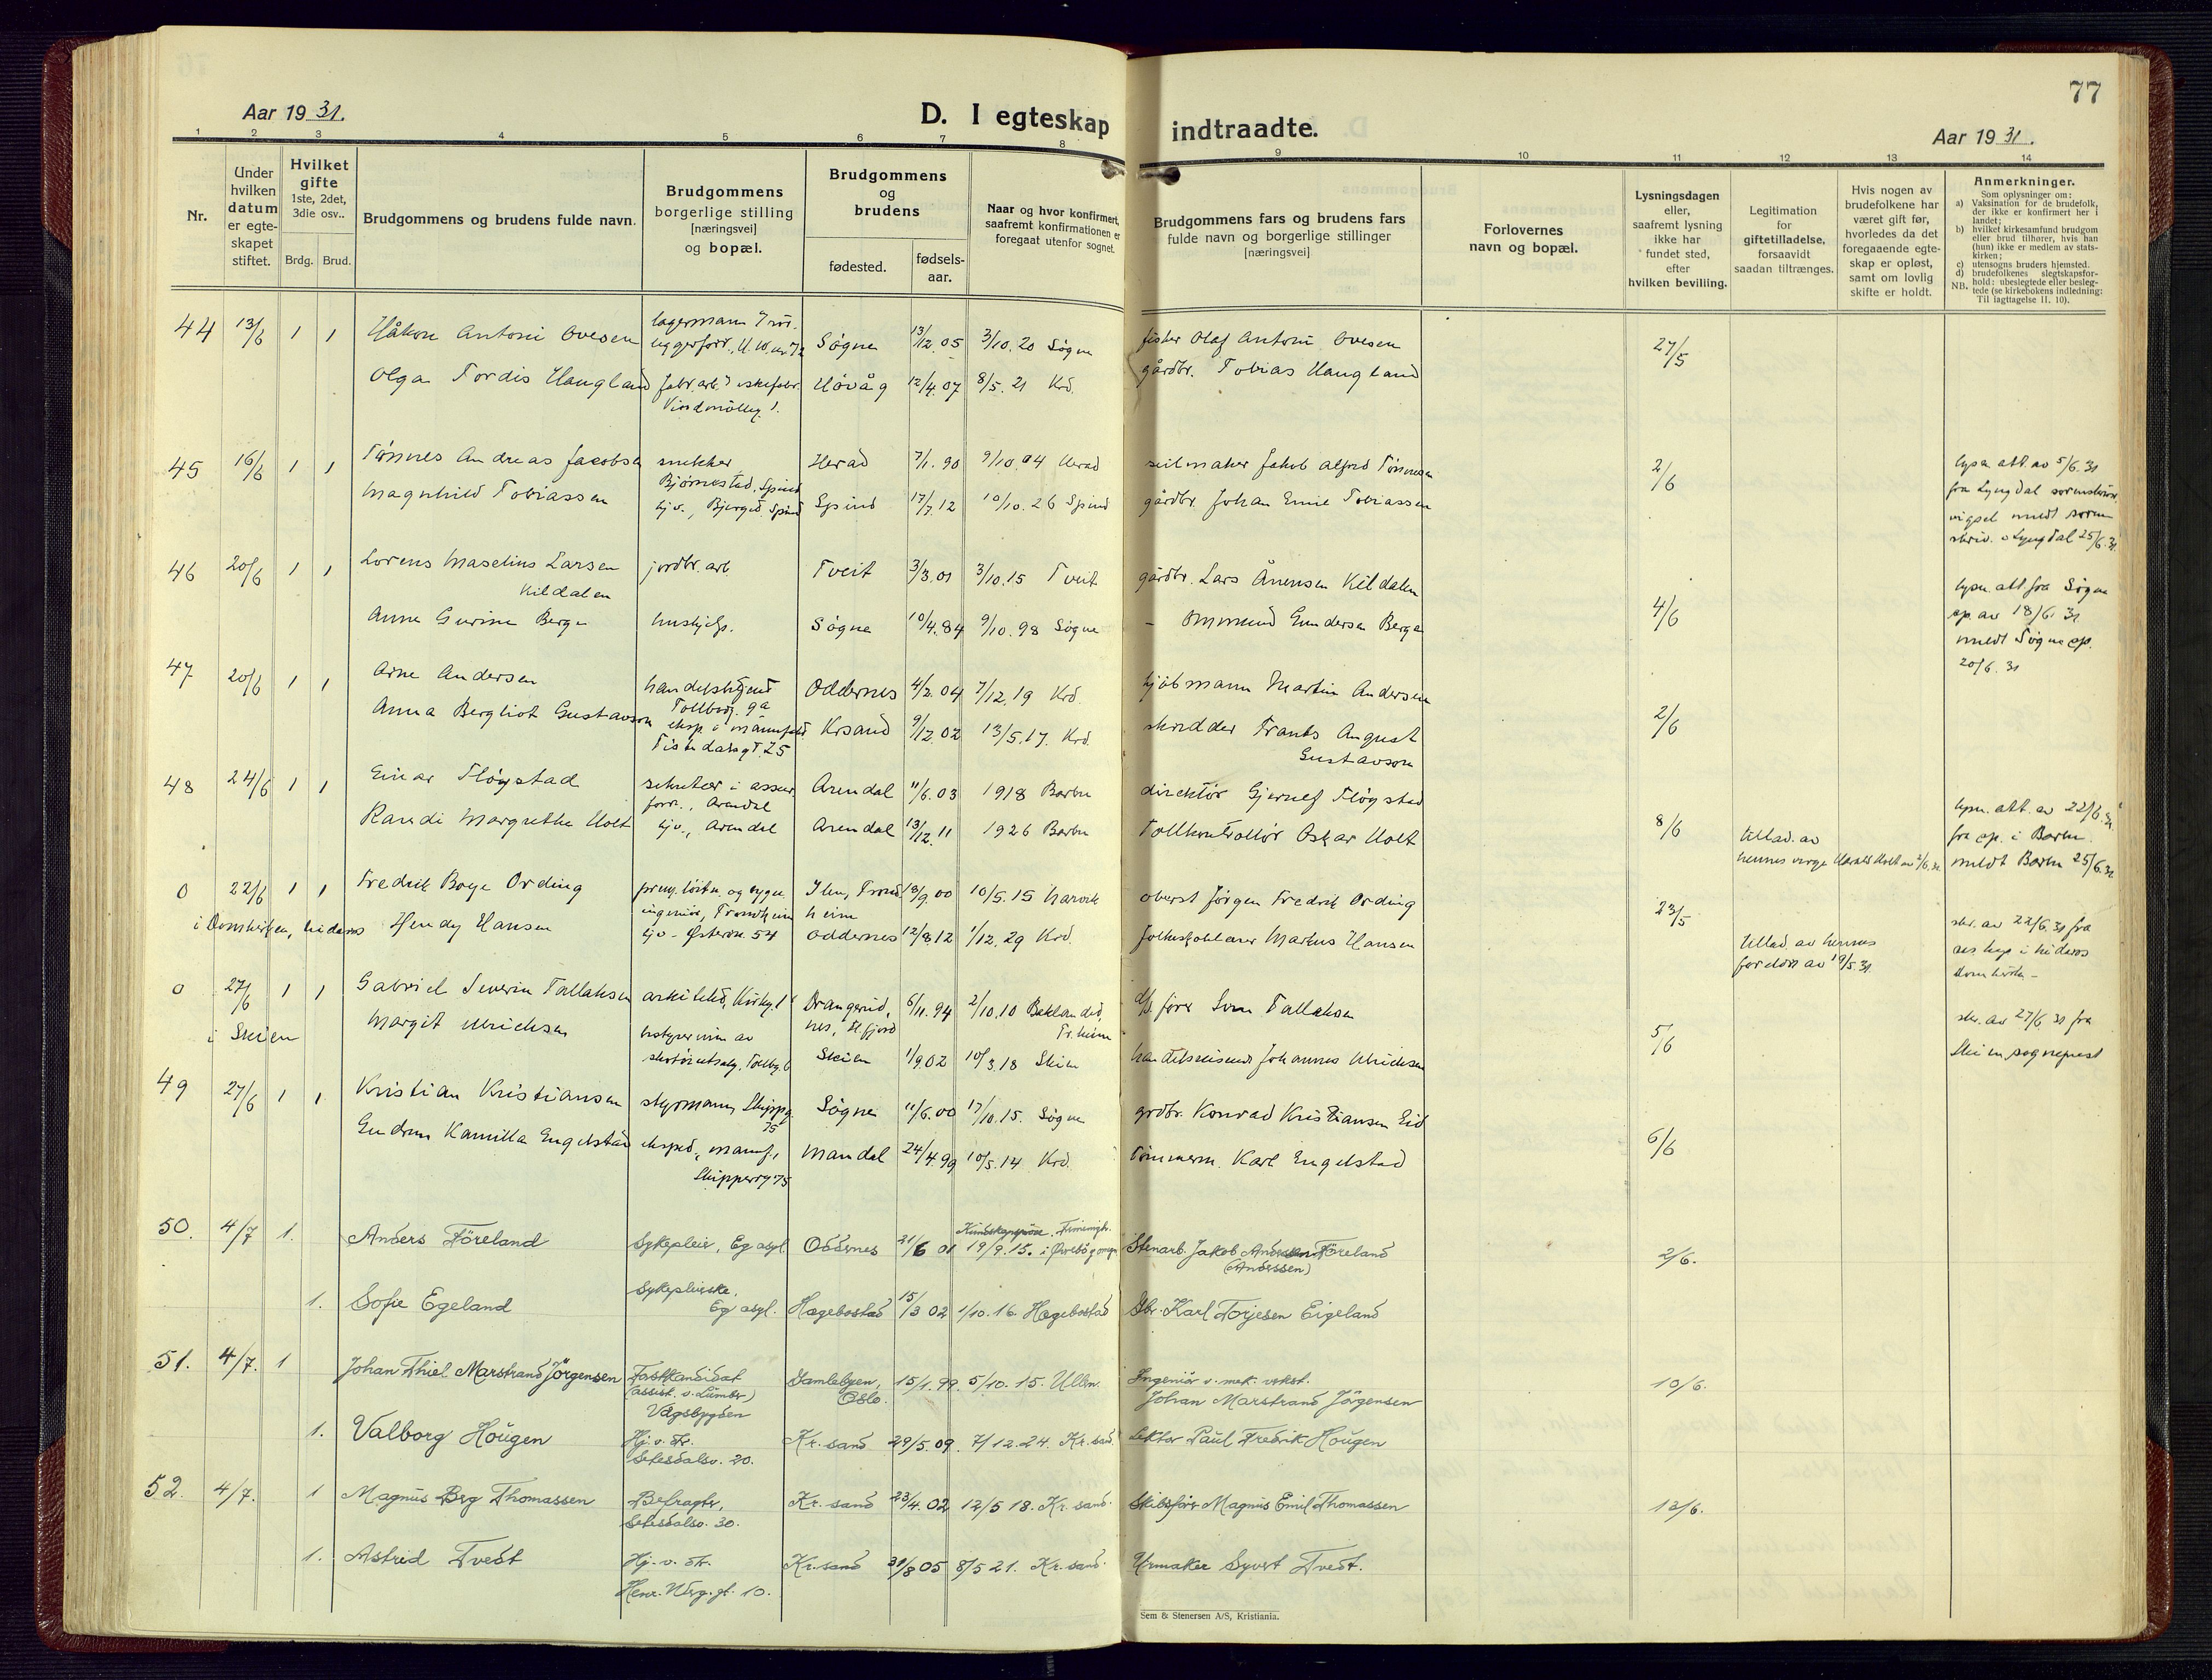 77
Aar 1931.
D. I egteskap indtraadte.
Aar 1931.
1 2 3 4 5 6 7 8 9 10 11 12 13 14
Nr.
Under hvilken datum er egte-skapet stiftet.
Hvilket gifte 1ste, 2det, 3die osv..
Brdg. Brud.
Brudgommens og brudens fulde navn.
Brudgommens borgerlige stilling [næringsvei] og bopæl.
Brudgommens og brudens
fødested. fødsels-aar.
Naar og hvor konfirmert, saafremt konfirmationen er foregaat utenfor sognet.
Brudgommens fars og brudens fars fulde navn og borgerlige stillinger [næringsvei]
Forlovernes navn og bopæl.
Lysningsdagen eller, saafremt lysning ikke har fundet sted, efter hvilken bevilling.
Legitimation for giftetilladelse, forsaavidt saadan tiltrænges.
Hvis nogen av brudefolkene har været gift før, hvorledes da det foregaaende egte-skap er opløst, samt om lovlig skifte er holdt.
Anmerkninger.
Som oplysninger om:
a) Vaksination for de brudefolk, der ikke er konfirmert her i landet;
b) hvilket kirkesamfund brudgom eller brud tilhører, hvis han (hun) ikke er medlem av stats-kirken;
c) utensogns bruders hjemsted.
d) brudefolkenes slegtskapsfor-hold: ubeslegtede eller besleg-tede (se kirkebokens indledning: Til iagttagelse II. 10).
NB.
44 13/6 1 1 Håkon Antoni Ovesen lagermann Søgne 13/12.05 3/10.20 Søgne fisker Olaf Antoni Ovesen 27/5
Olga Tordis Haugland Høvåg 12/4.07 8/5.21 Krd. gårdbr. Tobias Haugland
Vindmølleg. 1.
45 16/6 1 1 Tønnes Andreas Jacobsen snekker Herad 7/1.90 9/10.04 Herad seilmaker Jakob Alfred Tønnesen 2/6 lysn. att. av 5/6.31
Bjørnestad, Spind fra Lyngdal sorenskriv.
Magnhild Tobiassen hjv., Spind Spind 17/7.12 10/10.26 Spind gårdbr. Johan Emil Tobiassen vigsel meldt soren
skriv. i Lyngdal 25/6.31
46 20/6 1 1 Lorens Maselius Larsen jordbr. arb Tveit 3/3.01 3/10.15 Tveit gårdbr. Lars Ånensen Kildalen 4/6 lysn. att fra Søgne
Kildalen sp. av 18/6.31
Anne Gurine Berge hushjelp. Søgne 10/4.84 9/10.98 Søgne – Ommund Gundersen Berge meldt Søgne sp.
20/6.31
47 20/6 1 1 Arne Andersen handelsbetjent Oddernes 4/2.04 7/12.19 Krd. kjøbmann Martin Andersen 2/6
Tollbodg. 9a
Anna Bergliot Gustavson eksp. i manufakt. Krsand 9/12.02 13/5.17. Krd. skredder Frants August
Gustavson
48 24/6 1 1 Einar Fløystad sekretær i assur. Arendal 11/6.03 1918 Barbu direktør Gjernlf Fløystad 8/6 lysn. att. av 22/6.31
forr., Arendal fra sp. i Barbu
Randi Margrethe Holt hjv., Arendal Arendal 13/12.11 1926 Barbu Tollkontrollør Oskar Holt tillad. av meldt Barbu 25/6.31
hennes verge Harald Holt av 2/6.31
0 22/6 1 1 Fredrik Boye Ording Ilen, Trond 18/9.00 10/5.15 Narvik oberst Jørgen Fredrik Ording 23/5 skr. av 22/6.31 fra
ingeniør, Trondheim heim
i Domkirken, Nidaros Hendy Hansen hjv - Østerve. 54 Oddernes 12/8.12 1/12.29 Krd. folkeskolelærer Markus Hansen tillad. av hennes res. kap i Nidaros
foreldre av 19/5.31. Domkirke –
0 27/6 1 1 Gabriel Severin Tallaksen arkitekt, Kirkeg. 1 6/11.94 2/10.10 Baklandet, d/s fører Sven Tallaksen 5/6 skr. av 27/6.31 fra
Tr.heim
i Skien Margit Ulrichsen bestyrerinne av Skien 1/9.02 10/3.18 Skien handelsreisende Johannes Ulrichsen Skien sogneprest
skotøiutsalg, Tollbg. 6
49 27/6 1 1 Kristian Kristiansen styrmann, Skipperg Søgne 11/6.00 17/10.15. Søgne grdbr. Konrad Kristiansen Eid 6/6
75
Gudrun Kamilla Engelstad eksped., manuf., Mandal 24/4.99 10/5.14 Krd. Tømmerm. Karl Engelstad
Skipperg 75
50. 4/7 1. Anders Föreland Sykepleier, Eg asyl. Oddernes 21/6 01 19/9.15. i Øvrebø Stenarb. Jakob Andersen Föreland 2/6.
(Anderssen)
1. Sofie Egeland Sykepleierske, Eg asyl. Hægebostad 15/3 02 1/10.16. Hægebostad Gbr. Karl Torjesen Eigeland
51. 4/7. 1 Johan Thiel Marstrand Jörgensen Forstkandidat Gamlebyen, 15/1.99. 5/10.15. Ullern. Ingeniör v. mek. verkst. 10/6.
(assist. v. Lumber) Oslo. Johan Marstrand Jörgensen
Vågsbygden
1. Valborg Hougen Hj. v. Fr. Kr.sand 29/5.09. 7/12.24. Kr.sand. Lektor Paul Fredrik Hougen
Setesdalsv. 20.
52. 4/7. 1 Magnus Berg Thomassen Befragter, Kr.sand 23/4.02 12/5 18. Kr.sand. Skibsförer Magnus Emil Thomassen 13/6.
Setesdalsv. 30.
1. Astrid Tvedt Hj. v. Fr. Kr.sand 31/8 05 8/5 21. Kr.sand. Urmaker Syvert Tvedt.
Henr. Werg. gt. 10.
Sem & Stenersen A/S, Kristiania.